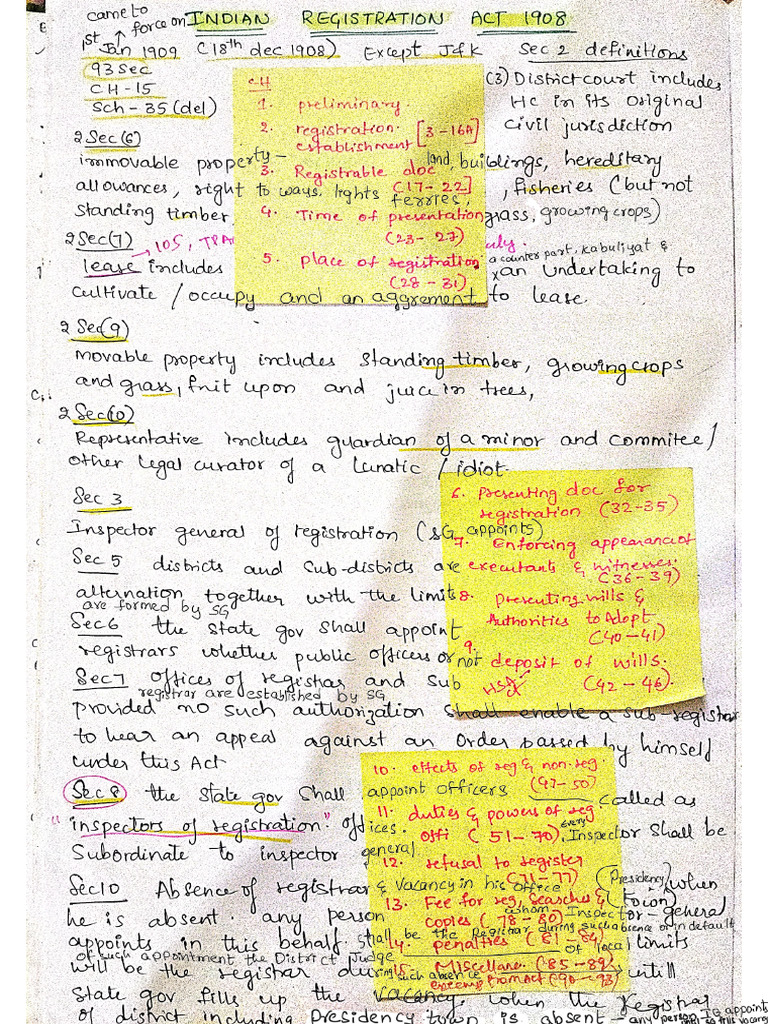 came to
force on INDIAN REGISTRATION ACT 1908
1st Jan 1909 (18th dec 1908) Except J&K Sec 2 definitions
93 Sec
CH-15
Sch-35 (del)
(3) District court includes
Hc in its original
civil jurisdiction
CH
1. preliminary.
2. registration establishment [3-16A]
3. Registrable doc (17-22]
4. Time of presentation (23-27)
5. place of registration (28-31)
2 Sec(6)
immovable property - land, buildings, hereditary
allowances, right to ways, lights ferries, fisheries (but not
standing timber, grass, growing crops)
2 Sec(7)
105, TPA
lease includes a counter part, kabuliyat &
an undertaking to
cultivate / occupy and an aggrement to lease.
2 Sec(9)
movable property includes standing timber, growing crops
and grass, fruit upon and juice in trees,
2 Sec(10)
Representative includes guardian of a minor and commitee/
other legal curator of a lunatic / idiot.
Sec 3
Inspector general of registration (SG appoints)
6. presenting doc for registration (32-35)
7. Enforcing appearance of executants & witnesses. (36-39)
8. presenting wills & Authorities to Adopt (40-41)
9. deposit of wills. (42-46)
Sec 5 districts and sub-districts are
alternation together with the limits
are formed by SG
Sec 6 the state gov shall appoint
registrars whether public officers or not
Sec 7 offices of registrar and sub
registrar are established by SG
provided no such authorization shall enable a sub-registrar
to hear an appeal against an order passed by himself
under this Act
Sec 8 the state gov shall appoint officers called as
"inspectors of registration" offices. every Inspector shall be
Subordinate to inspector general
10. effects of reg & non-reg. (47-50)
11. duties & powers of reg offi (51-70)
12. refusal to register (71-77)
13. Fee for reg, searches & copies (78-80)
14. penalties (81-84)
15. Miscellane. (85-89)
(90-93)
Sec 10 Absence of registrar & vacancy in his office (Presidency town) when
he is absent. any person whom Inspector-general
appoints in this behalf shall be the Registrar during such absence or in default
of such appointment, the District Judge of local limits
will be the registrar during such absence until
state gov fills up the vacancy. when the Registrar
of district including Presidency town is absent - any person IG appoint